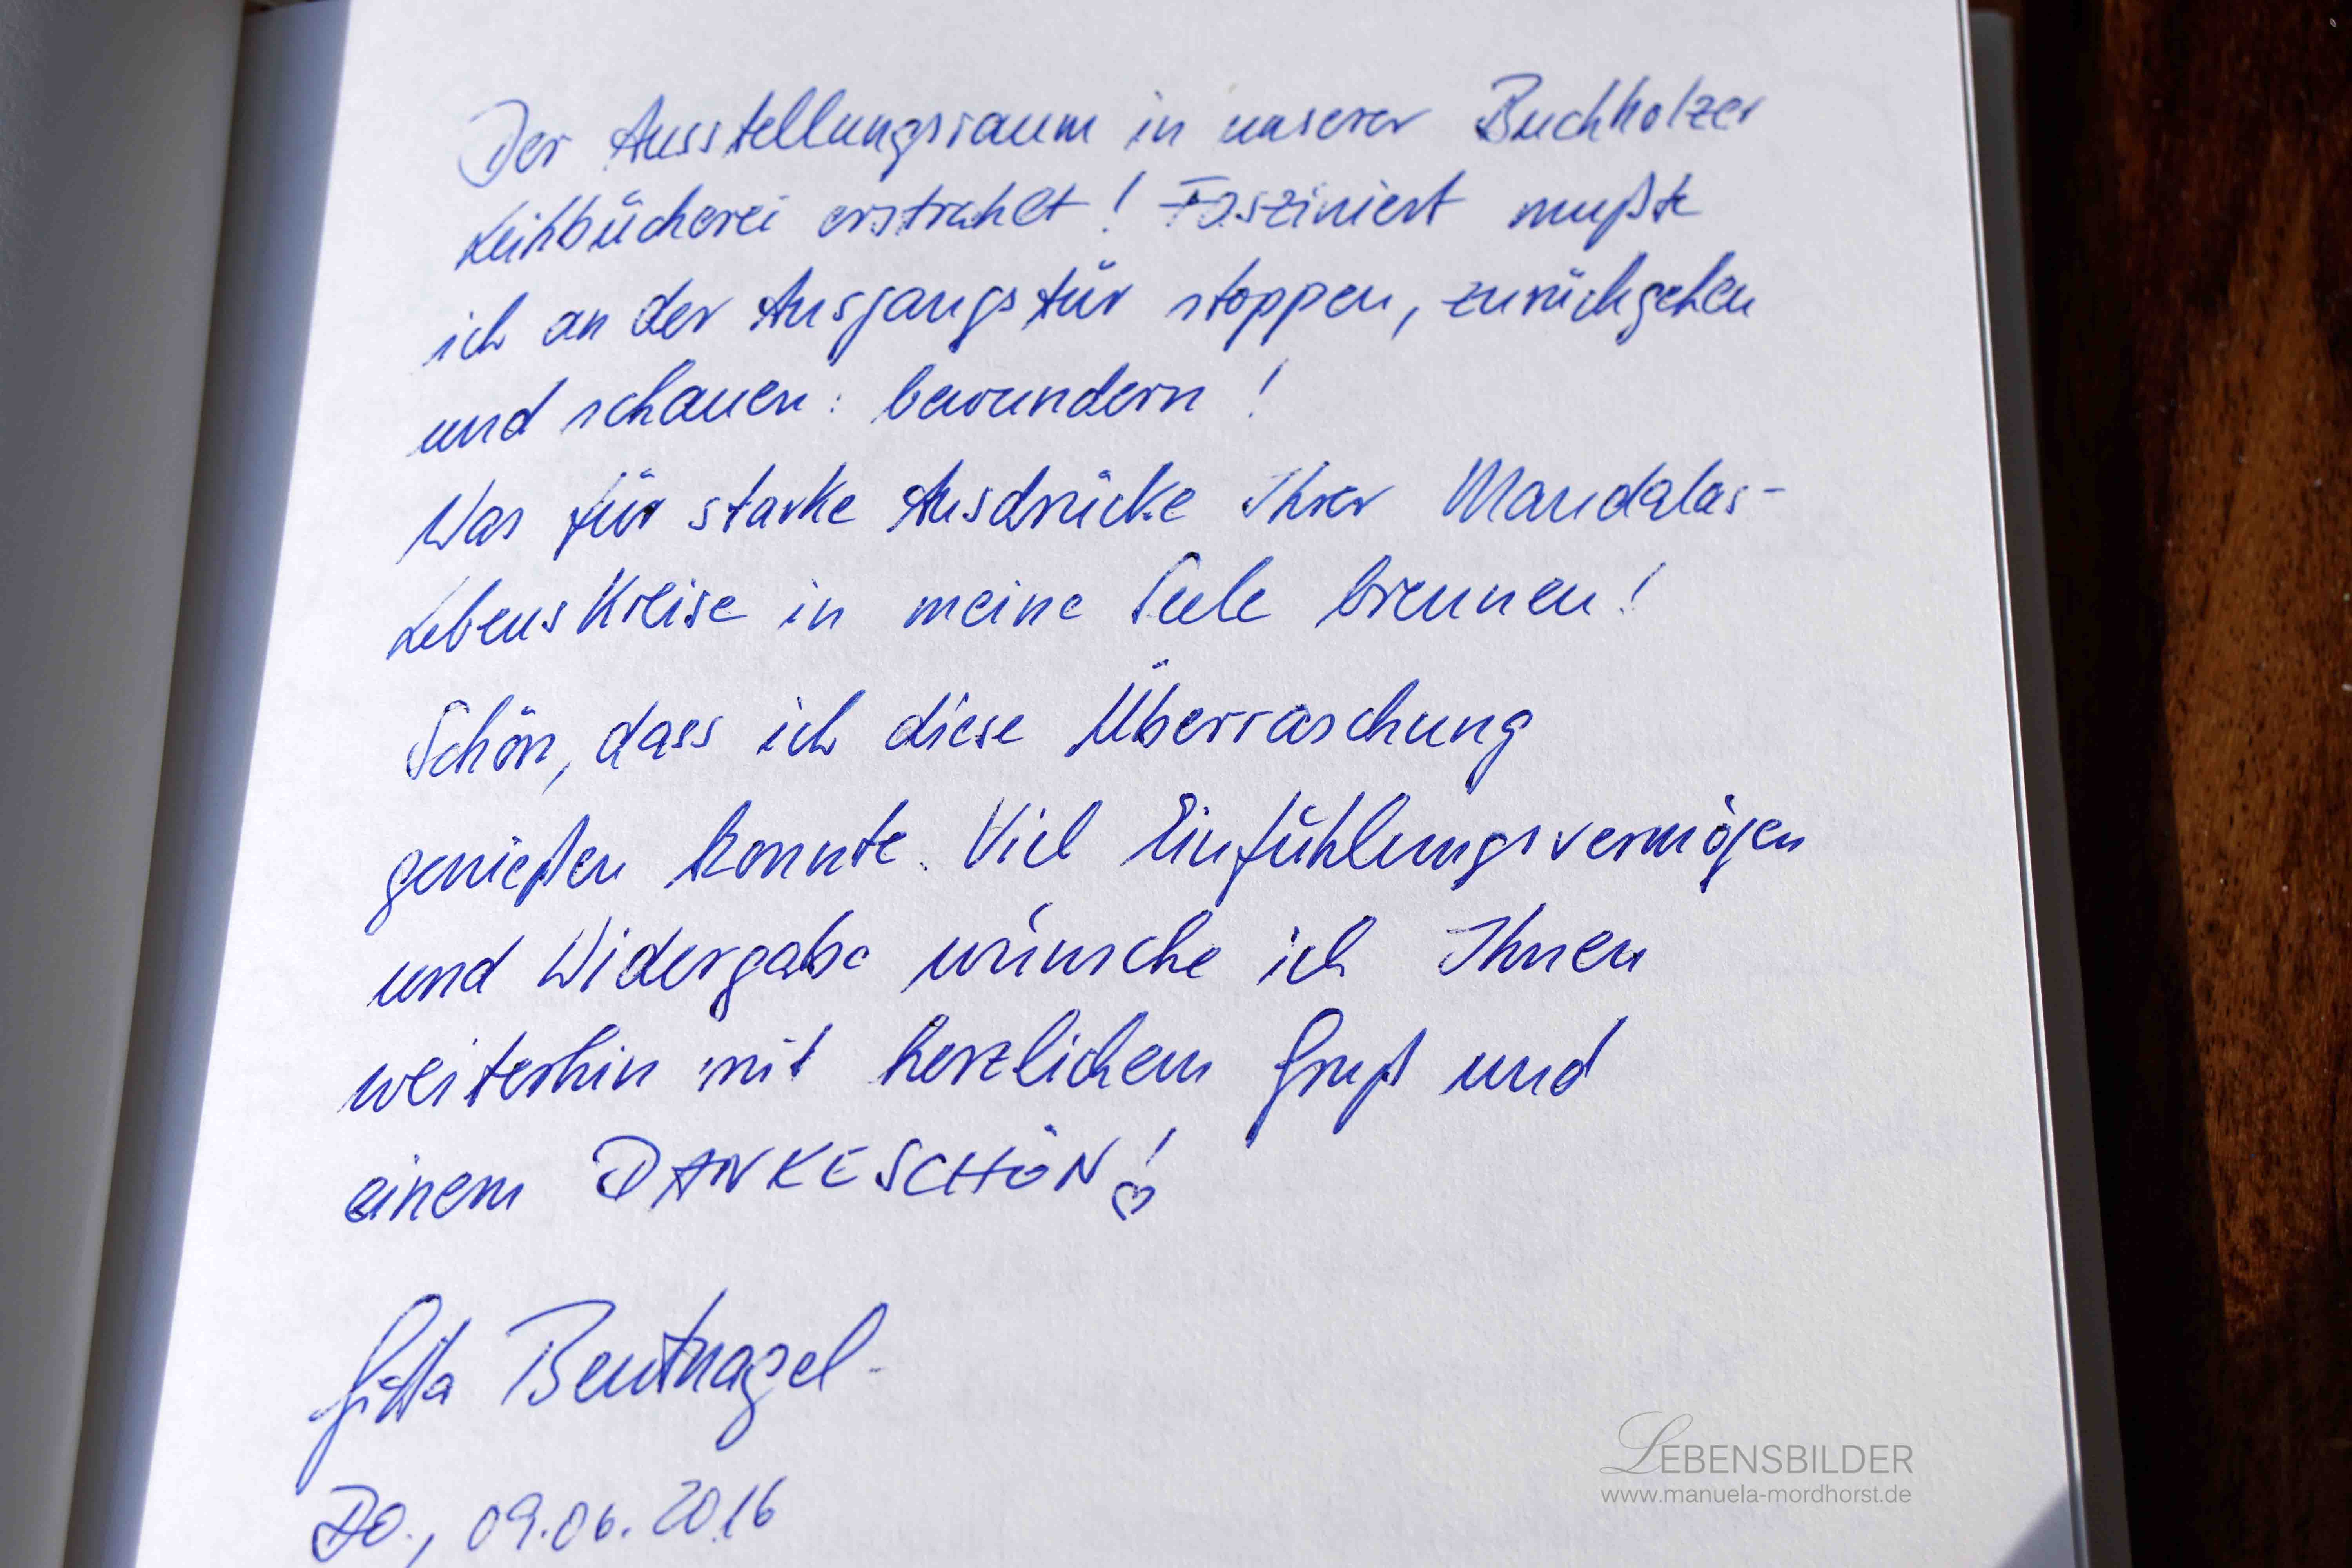 Der Ausstellungsraum in unserer Buchholzer
Leihbücherei erstrahlt! Fasziniert mußte
ich an der Ausgangstür stoppen, zurückgehen
und schauen: bewundern!
Was für starke Ausdrücke Ihrer Mandalas-
LebensKreise in meine Seele brennen!
Schön, dass ich diese Überraschung
genießen konnte. Viel Einfühlungsvermögen
und Widergabe wünsche ich Ihnen
weiterhin mit herzlichem Gruß und
einem DANKESCHÖN!
Gitta Beutnagel
Do., 09.06.2016
LEBENSBILDER
www.manuela-mordhorst.de